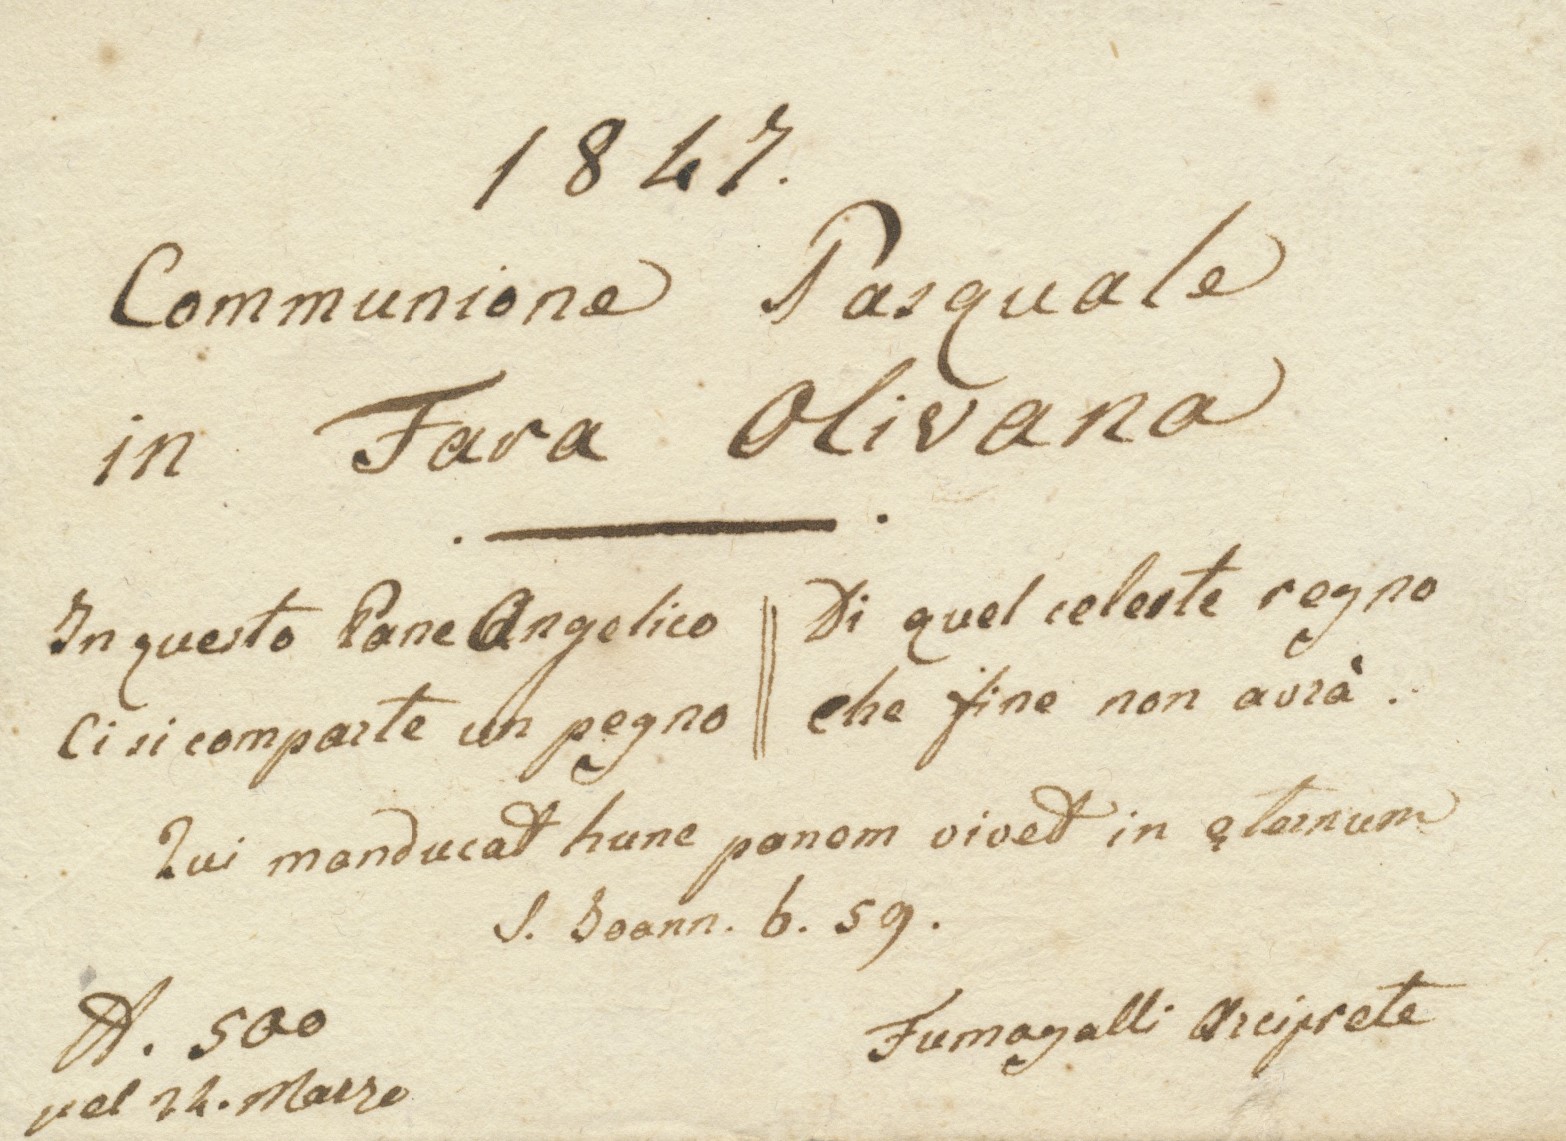 1847.
Communione Pasquale
in Fara Olivana
In questo Pane Angelico || Di quel celeste regno
Ci si comparte un pegno || che fine non avrà.
Qui manducat hunc panem vivet in ęternum
S. Joann. 6. 59.
N. 500
pel 24. Marzo
Fumagalli Arciprete